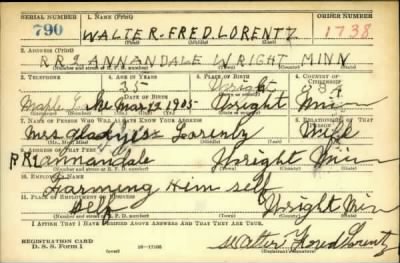 SERIAL NUMBER 1. NAME (Print) ORDER NUMBER
790 WALTER-FRED.LORENTZ 1738
2. ADDRESS (Print)
RR2 ANNANDALE WRIGHT MINN
3. TELEPHONE 4. AGE IN YEARS 5. PLACE OF BIRTH 6. COUNTRY OF CITIZENSHIP
35 Wright
Maple Mar 12 1905 Wright Minn
7. NAME OF PERSON WHO WILL ALWAYS KNOW YOUR ADDRESS RELATIONSHIP OF THAT PERSON
Mrs Lorentz Wife
ADDRESS OF THAT PERSON
RR1 annandale Wright Min
10. EMPLOYER'S NAME
Farming Him self
11. PLACE OF EMPLOYMENT OR BUSINESS
self Wright Min
I AFFIRM THAT I HAVE VERIFIED ABOVE ANSWERS AND THAT THEY ARE TRUE.
REGISTRATION CARD
D. S. S. Form 1 Walter Fred Lorentz